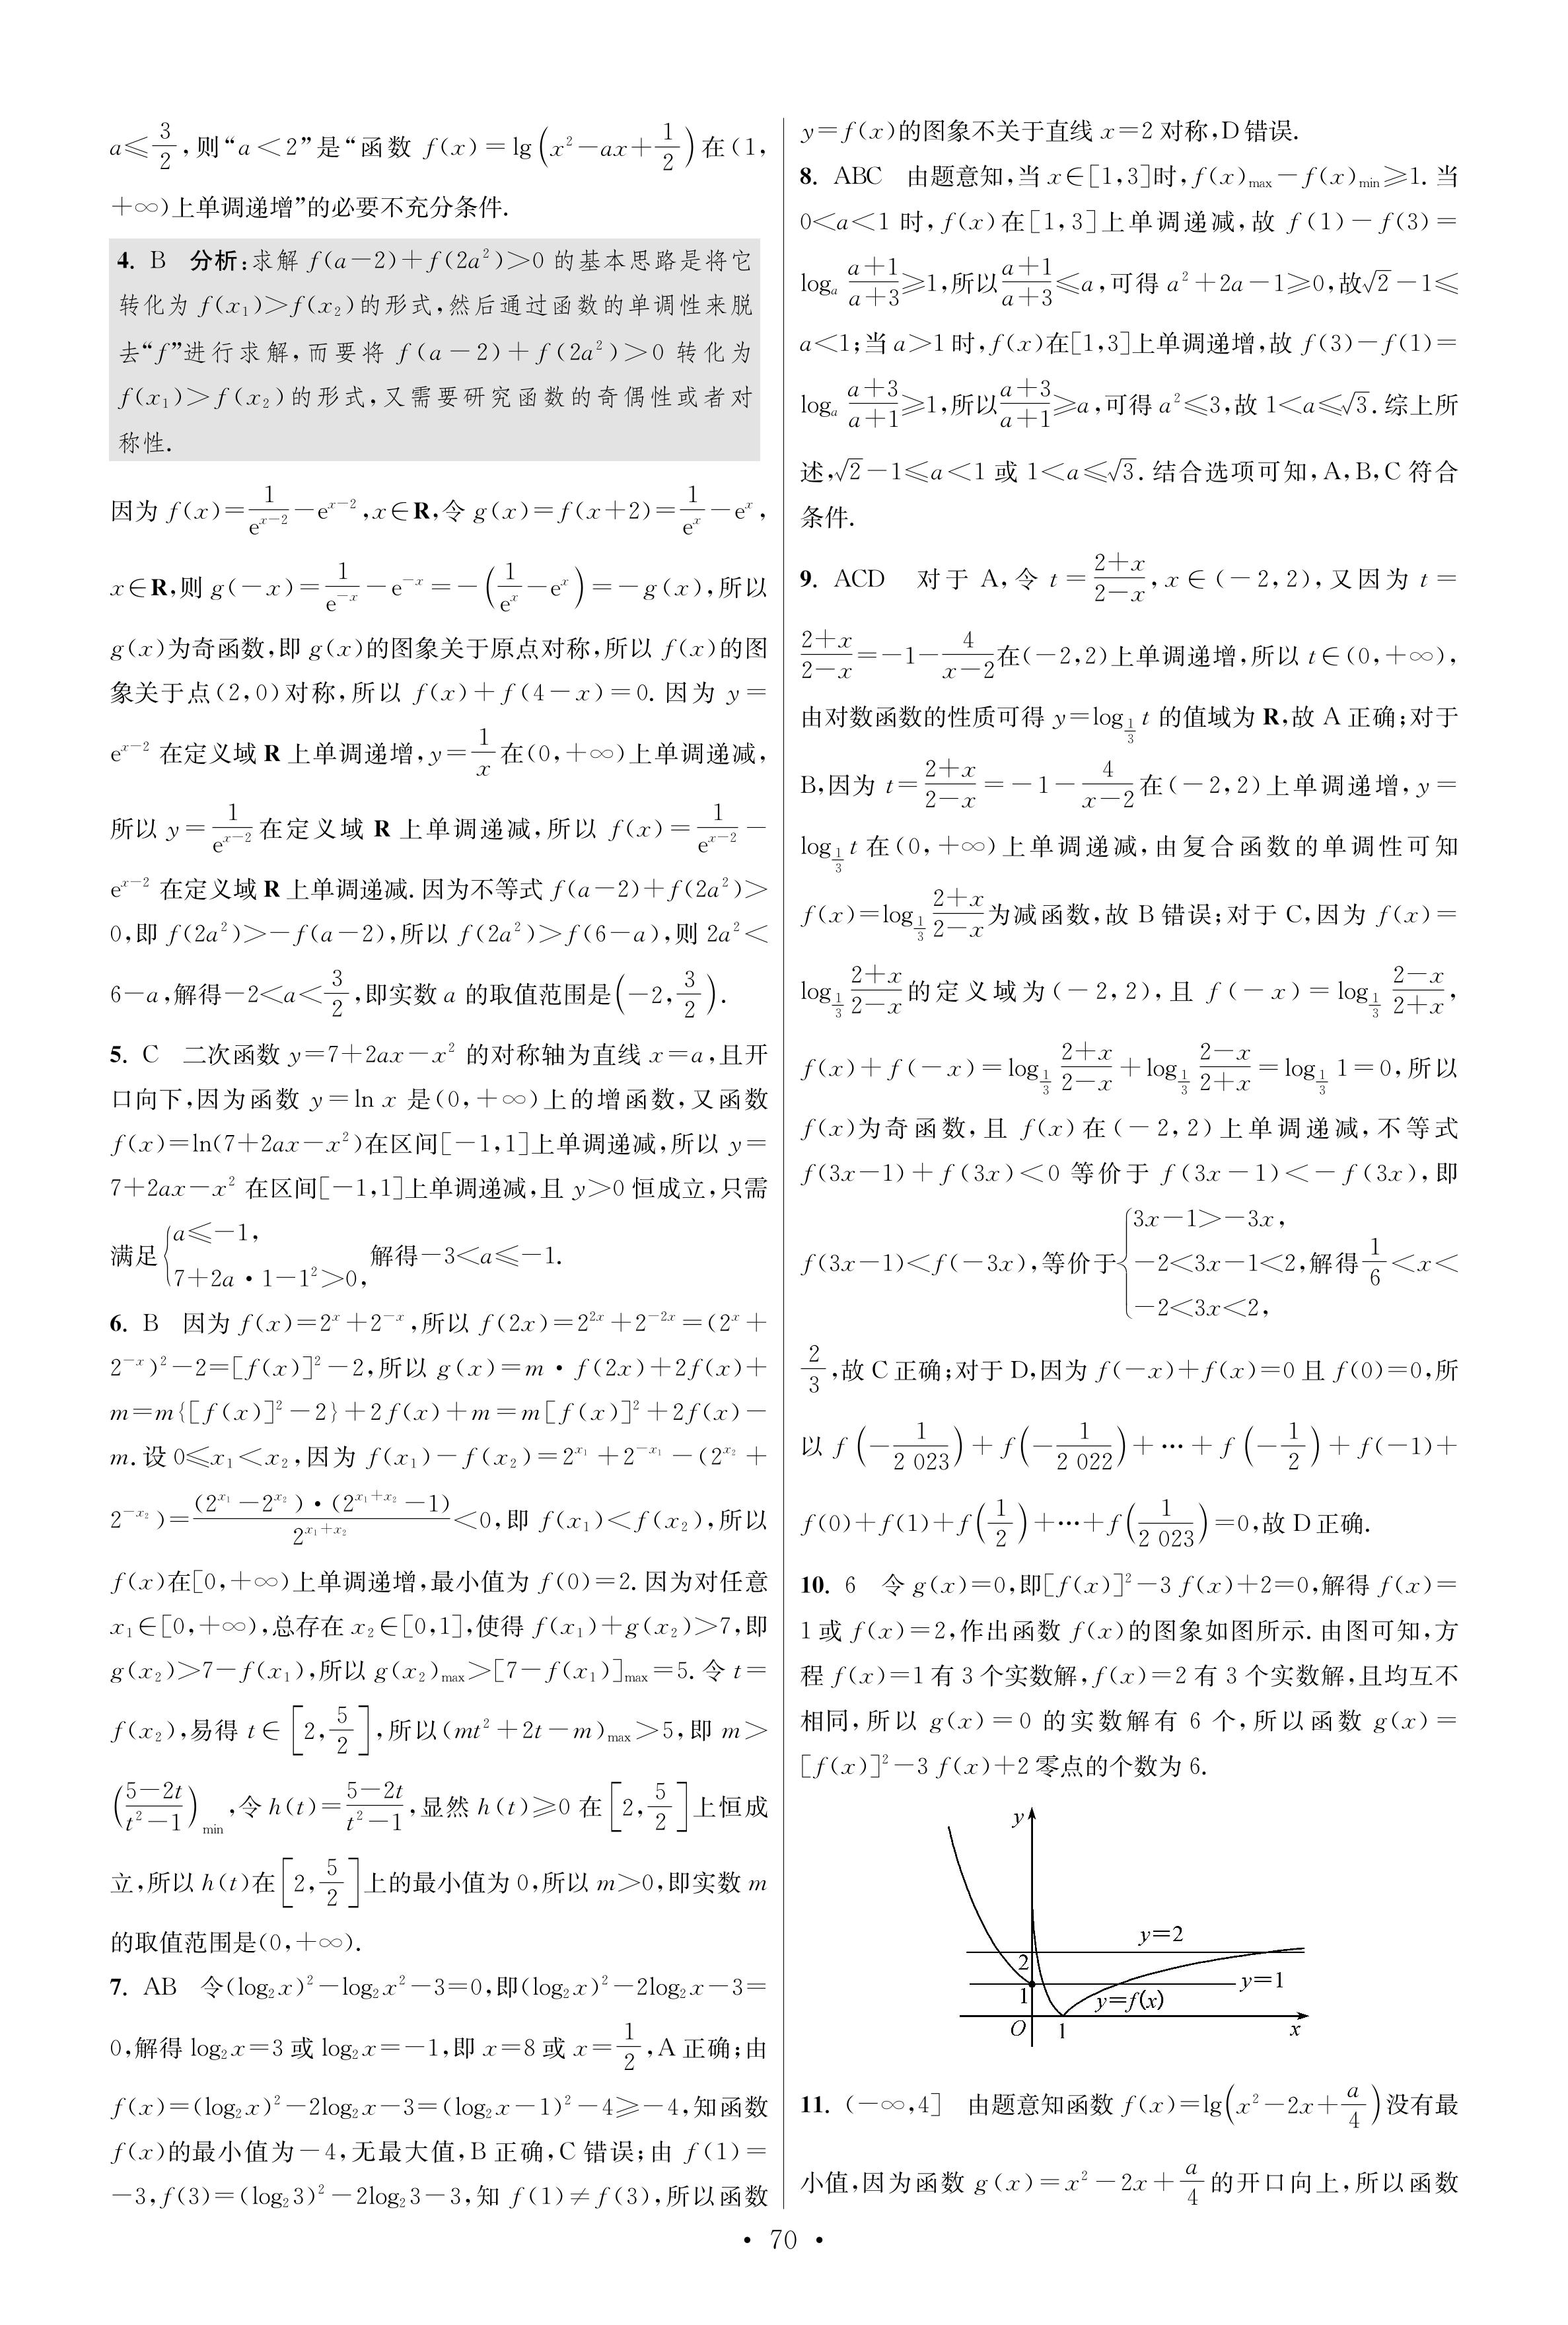 a≤3/2,则“a<2”是“函数 f(x)=lg(x²-ax+1/2)在(1,
+∞)上单调递增”的必要不充分条件.
4. B 分析:求解 f(a-2)+f(2a²)>0 的基本思路是将它
转化为 f(x₁)>f(x₂)的形式,然后通过函数的单调性来脱
去“f”进行求解,而要将 f(a-2)+f(2a²)>0 转化为
f(x₁)>f(x₂)的形式,又需要研究函数的奇偶性或者对
称性.
因为 f(x)=1/e^(x-2)-e^(x-2),x∈R,令 g(x)=f(x+2)=1/e^x-e^x,
x∈R,则 g(-x)=1/e^(-x)-e^(-x)=-(1/e^x-e^x)=-g(x),所以
g(x)为奇函数,即 g(x)的图象关于原点对称,所以 f(x)的图
象关于点(2,0)对称,所以 f(x)+f(4-x)=0. 因为 y=
e^(x-2) 在定义域 R 上单调递增,y=1/x在(0,+∞)上单调递减,
所以 y=1/e^(x-2)在定义域 R 上单调递减,所以 f(x)=1/e^(x-2)-
e^(x-2) 在定义域 R 上单调递减. 因为不等式 f(a-2)+f(2a²)>
0,即 f(2a²)>-f(a-2),所以 f(2a²)>f(6-a),则 2a²<
6-a,解得-2<a<3/2,即实数 a 的取值范围是(-2,3/2).
5. C 二次函数 y=7+2ax-x² 的对称轴为直线 x=a,且开
口向下,因为函数 y=ln x 是(0,+∞)上的增函数,又函数
f(x)=ln(7+2ax-x²)在区间[-1,1]上单调递减,所以 y=
7+2ax-x² 在区间[-1,1]上单调递减,且 y>0 恒成立,只需
满足{a≤-1, 7+2a·1-1²>0, 解得-3<a≤-1.
6. B 因为 f(x)=2^x+2^(-x),所以 f(2x)=2^(2x)+2^(-2x)=(2^x+
2^(-x))²-2=[f(x)]²-2,所以 g(x)=m·f(2x)+2f(x)+
m=m{[f(x)]²-2}+2f(x)+m=m[f(x)]²+2f(x)-
m. 设 0≤x₁<x₂,因为 f(x₁)-f(x₂)=2^(x₁)+2^(-x₁)-(2^(x₂)+
2^(-x₂))=(2^(x₁)-2^(x₂))·(2^(x₁+x₂)-1)/2^(x₁+x₂)<0,即 f(x₁)<f(x₂),所以
f(x)在[0,+∞)上单调递增,最小值为 f(0)=2. 因为对任意
x₁∈[0,+∞),总存在 x₂∈[0,1],使得 f(x₁)+g(x₂)>7,即
g(x₂)>7-f(x₁),所以 g(x₂)max>[7-f(x₁)]max=5. 令 t=
f(x₂),易得 t∈[2,5/2],所以(mt²+2t-m)max>5,即 m>
((5-2t)/(t²-1))min,令 h(t)=(5-2t)/(t²-1),显然 h(t)≥0 在[2,5/2]上恒成
立,所以 h(t)在[2,5/2]上的最小值为 0,所以 m>0,即实数 m
的取值范围是(0,+∞).
7. AB 令(log₂x)²-log₂x²-3=0,即(log₂x)²-2log₂x-3=
0,解得 log₂x=3 或 log₂x=-1,即 x=8 或 x=1/2,A 正确;由
f(x)=(log₂x)²-2log₂x-3=(log₂x-1)²-4≥-4,知函数
f(x)的最小值为-4,无最大值,B 正确,C 错误;由 f(1)=
-3,f(3)=(log₂3)²-2log₂3-3,知 f(1)≠f(3),所以函数
y=f(x)的图象不关于直线 x=2 对称,D 错误.
8. ABC 由题意知,当 x∈[1,3]时,f(x)max-f(x)min≥1. 当
0<a<1 时,f(x)在[1,3]上单调递减,故 f(1)-f(3)=
logₐ (a+1)/(a+3)≥1,所以(a+1)/(a+3)≤a,可得 a²+2a-1≥0,故√2-1≤
a<1;当 a>1 时,f(x)在[1,3]上单调递增,故 f(3)-f(1)=
logₐ (a+3)/(a+1)≥1,所以(a+3)/(a+1)≥a,可得 a²≤3,故 1<a≤√3. 综上所
述,√2-1≤a<1 或 1<a≤√3. 结合选项可知,A,B,C 符合
条件.
9. ACD 对于 A,令 t=(2+x)/(2-x),x∈(-2,2),又因为 t=
(2+x)/(2-x)=-1-4/(x-2)在(-2,2)上单调递增,所以 t∈(0,+∞),
由对数函数的性质可得 y=log_(1/3) t 的值域为 R,故 A 正确;对于
B,因为 t=(2+x)/(2-x)=-1-4/(x-2)在(-2,2)上单调递增,y=
log_(1/3) t 在(0,+∞)上单调递减,由复合函数的单调性可知
f(x)=log_(1/3) (2+x)/(2-x)为减函数,故 B 错误;对于 C,因为 f(x)=
log_(1/3) (2+x)/(2-x)的定义域为(-2,2),且 f(-x)=log_(1/3) (2-x)/(2+x),
f(x)+f(-x)=log_(1/3) (2+x)/(2-x)+log_(1/3) (2-x)/(2+x)=log_(1/3) 1=0,所以
f(x)为奇函数,且 f(x)在(-2,2)上单调递减,不等式
f(3x-1)+f(3x)<0 等价于 f(3x-1)<-f(3x),即
f(3x-1)<f(-3x),等价于{3x-1>-3x, -2<3x-1<2, -2<3x<2, 解得1/6<x<
2/3,故 C 正确;对于 D,因为 f(-x)+f(x)=0 且 f(0)=0,所
以 f(-1/2 023)+f(-1/2 022)+…+f(-1/2)+f(-1)+
f(0)+f(1)+f(1/2)+…+f(1/2 023)=0,故 D 正确.
10. 6 令 g(x)=0,即[f(x)]²-3f(x)+2=0,解得 f(x)=
1 或 f(x)=2,作出函数 f(x)的图象如图所示. 由图可知,方
程 f(x)=1 有 3 个实数解,f(x)=2 有 3 个实数解,且均互不
相同,所以 g(x)=0 的实数解有 6 个,所以函数 g(x)=
[f(x)]²-3f(x)+2 零点的个数为 6.
y
y=2
2
y=1
1
y=f(x)
O 1 x
11. (-∞,4] 由题意知函数 f(x)=lg(x²-2x+a/4)没有最
小值,因为函数 g(x)=x²-2x+a/4的开口向上,所以函数
· 70 ·